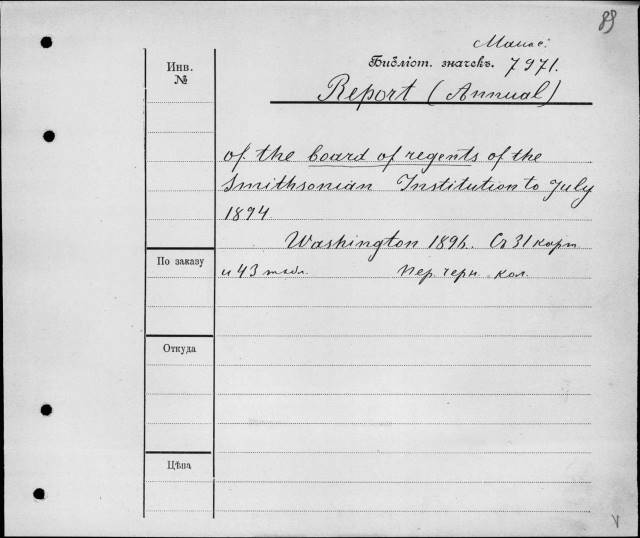 89
Библіот. значекъ. 7971.
Инв.
№
Report (Annual)
of the board of regents of the
Smithsonian Institution to July
1894
Washington 1896. Съ 31 карт
По заказу
и 43 табл. Пер. черн. кол.
Откуда
Цѣна
V